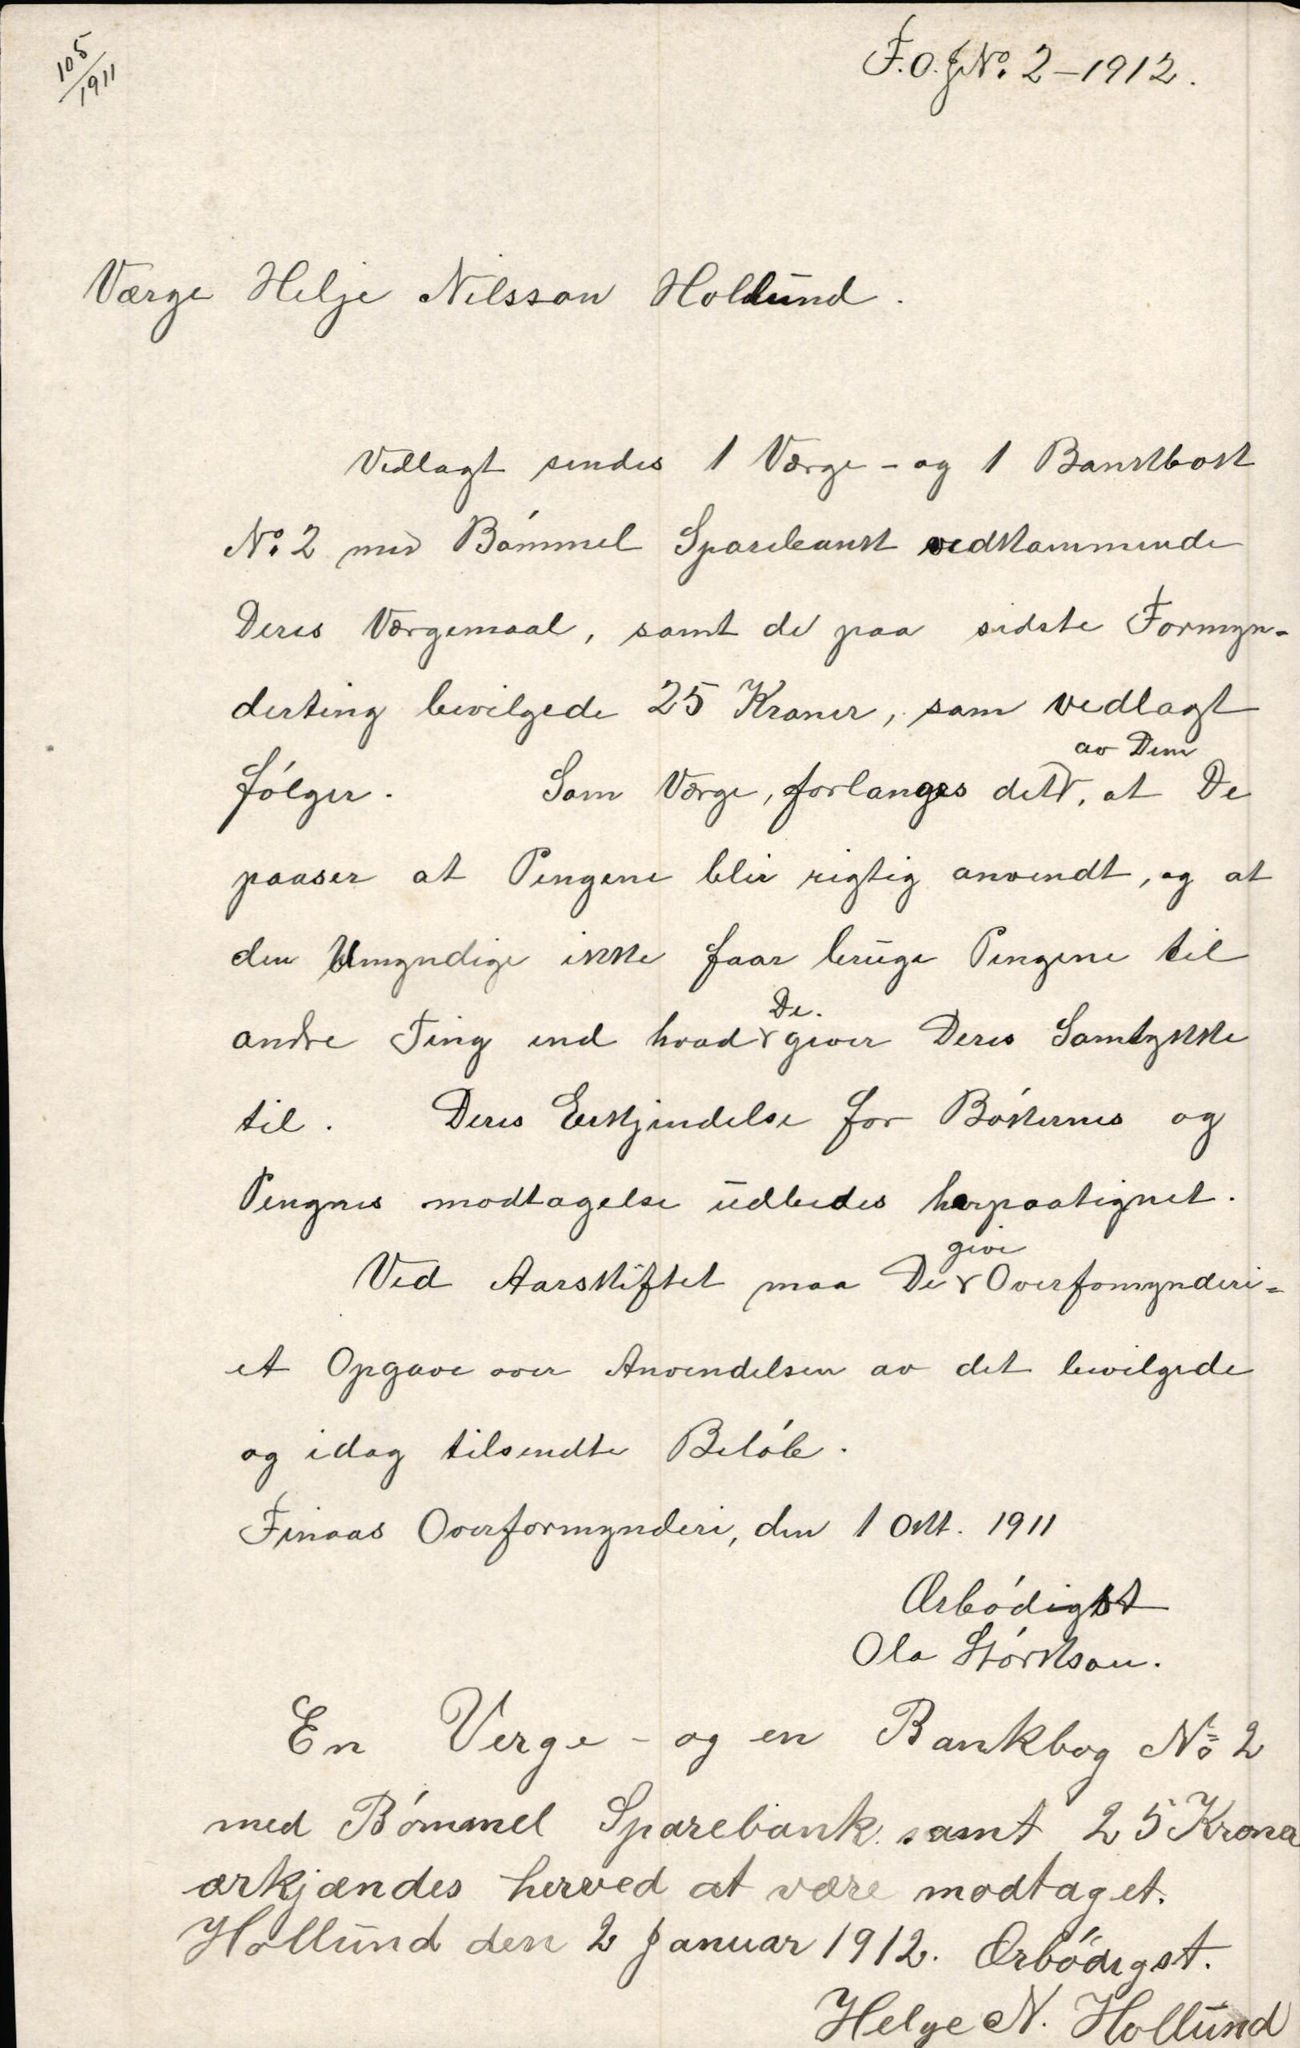 105/1911
F.O.J No. 2 – 1912.
Værge Helje Nilsson Hollund.
Vedlagt sendes 1 Værge - og 1 Bankbok
No. 2 med Bómmel Sparebank vedkommende
Deres Værgemaal, samt de paa sidste Formyn-
derting bevilgede 25 Kroner, som vedlagt
fólger. Som Værge, forlanges det av Dem, at De
paaser at Pengene blir rigtig anvendt, og at
den Umyndige ikke faar bruge Pengene til
andre Ting end hvad De. giver Deres Samtykke
til. Deres Erkjendelse for Bókernes og
Pengnes modtagelse udbedes herpaategnet.
Ved Aarskiftet maa De give Overfomynderi-
et Opgave over Anvendelsen av det bevilgede
og idag tilsendte Belób.
Finaas Overformynderi, den 1 Okt. 1911
Ærbódigst
Ola Stórkson.
En Verge - og en Bankbog No 2
med Bómmel Sparebank samt 25 Kroner
ærkjændes herved at være modtaget.
Hollund den 2 Januar 1912. Ærbódigst.
Helge N. Hollund